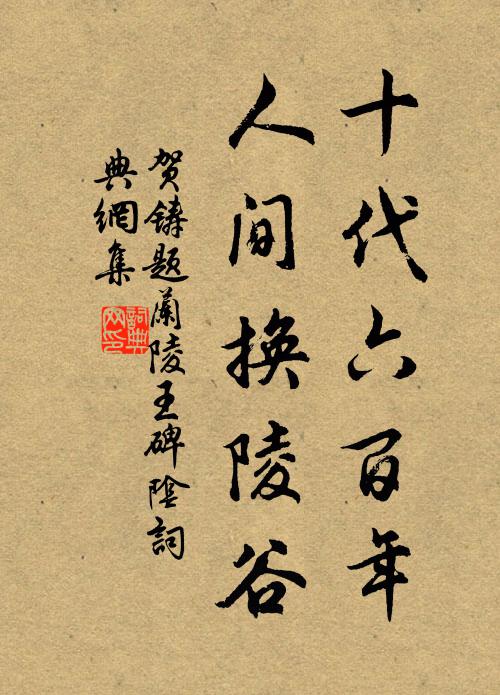 十代六百年
人间换陵谷
贺鑄题蘭陵王碑陰詞
典網集
詞典网印